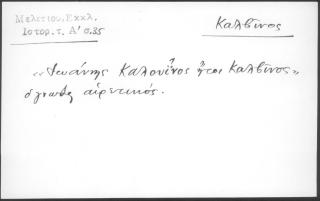 Μελετίου, Εκκλ.
Ιστορ. τ. Α' σ.35
Καλβῖνος
«Ἰωάννης Καλουῖνος ἤτοι Καλβῖνος»
ὁ γνωστὸς αἱρετικός.